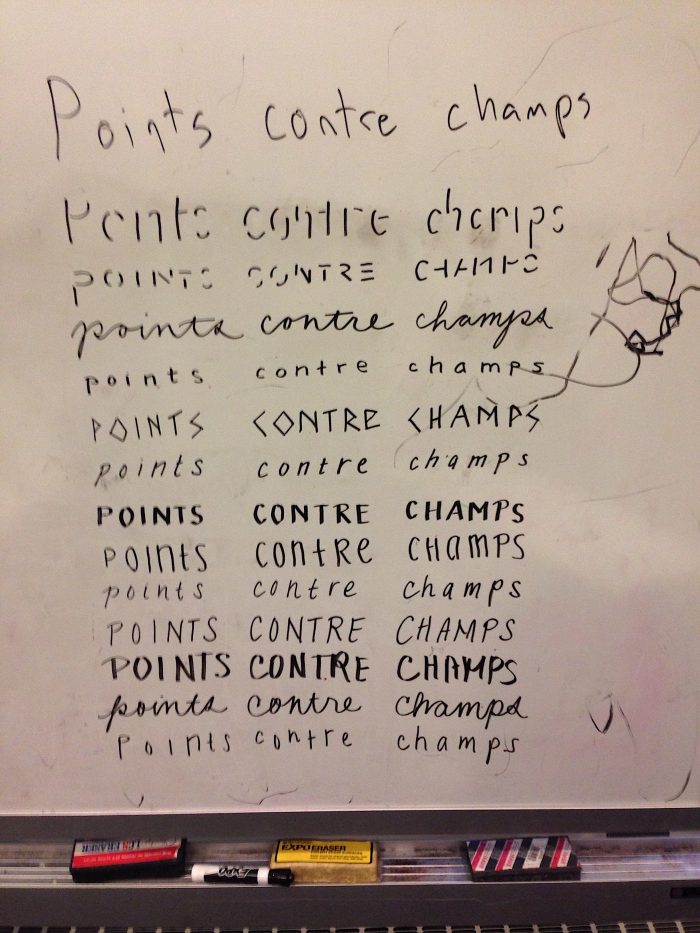 Points contre champs
Points contre champs
POINTS CONTRE CHAMPS
points contre champs
points contre champs
POINTS CONTRE CHAMPS
points contre champs
POINTS CONTRE CHAMPS
POINtS CONtRe CHaMPS
points contre champs
POINTS CONTRE CHAMPS
POINTS CONTRE CHAMPS
points contre champs
Points contre champs
ERASER
EXPO ERASER
EXPO